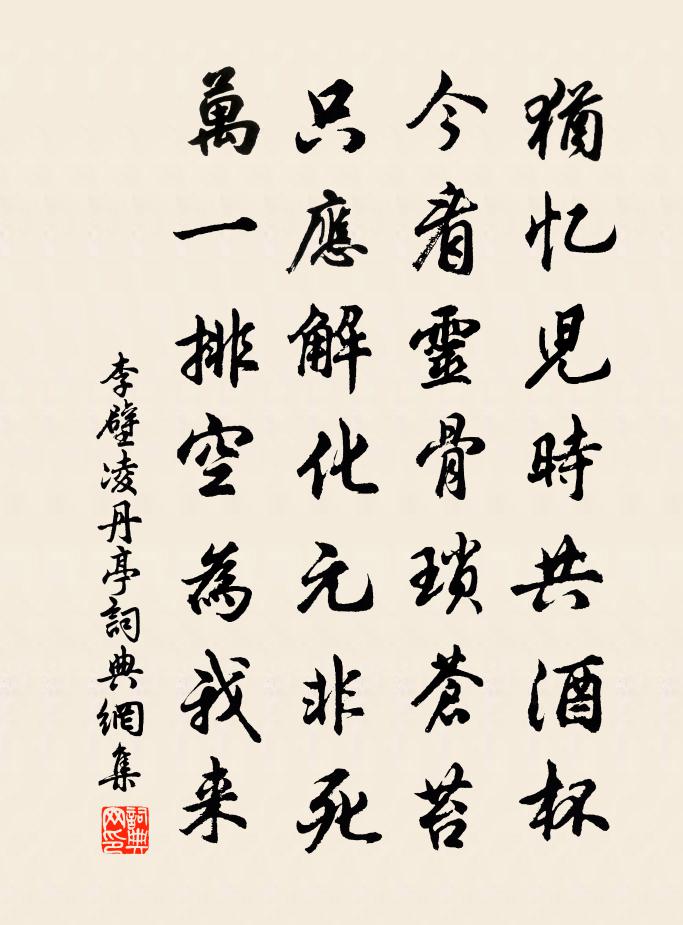 猶忆児時共酒杯
今看靈骨瑣蒼苔
只應解化元非死
萬一排空為我来
李壁凌丹亭詞典網集
詞典网印